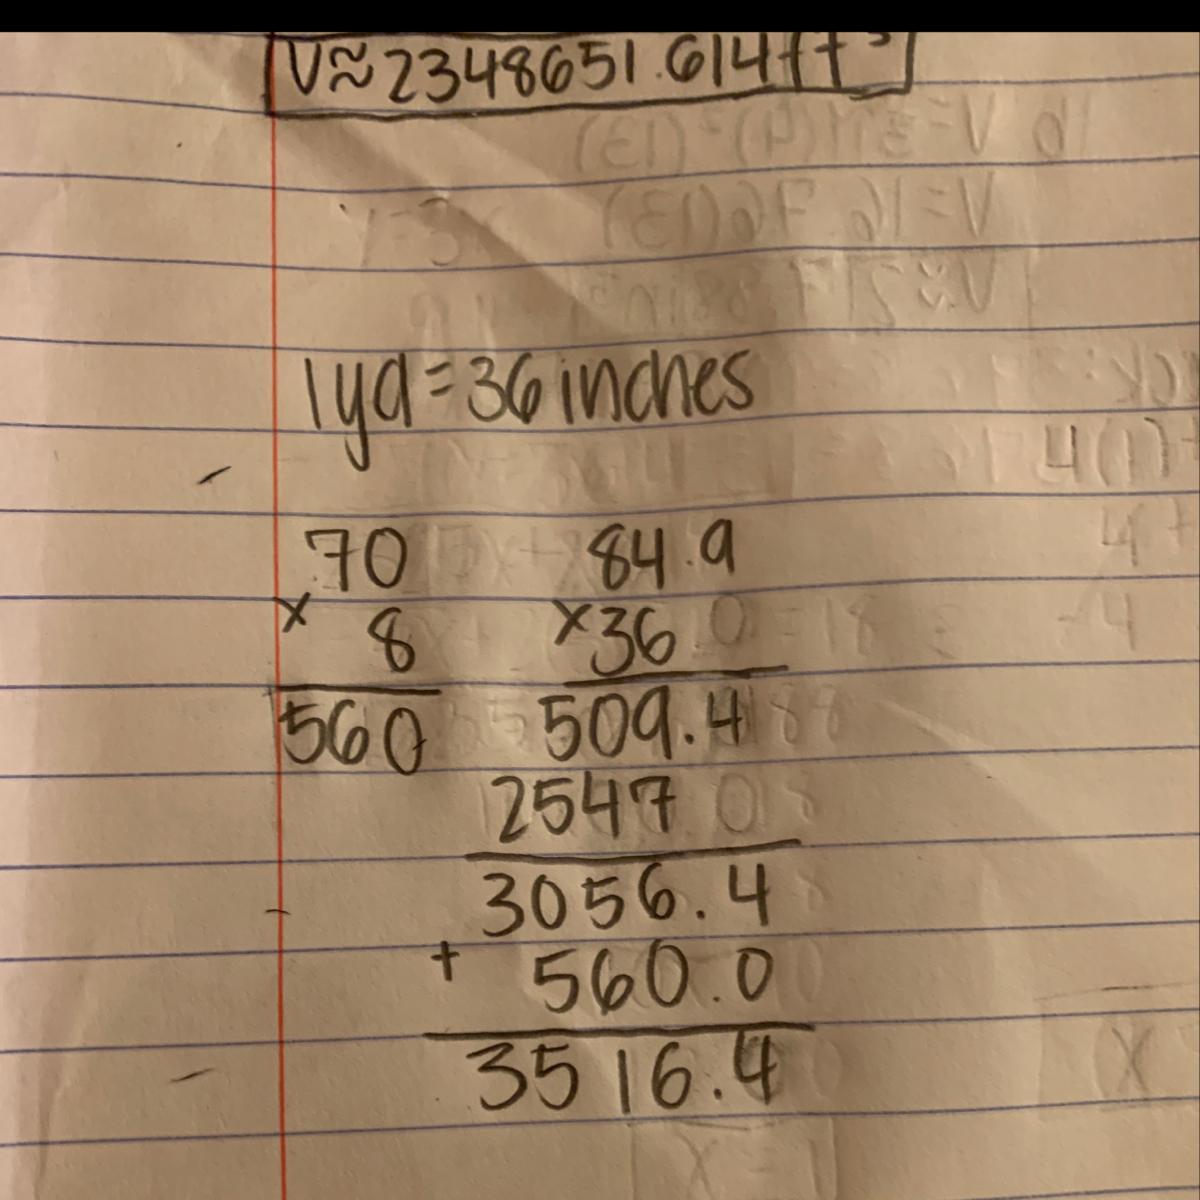 V≈2348651.614ft³
1yd=36inches
70 84.9
× 8 ×36
560 509.4
2547
3056.4
+ 560.0
3516.4